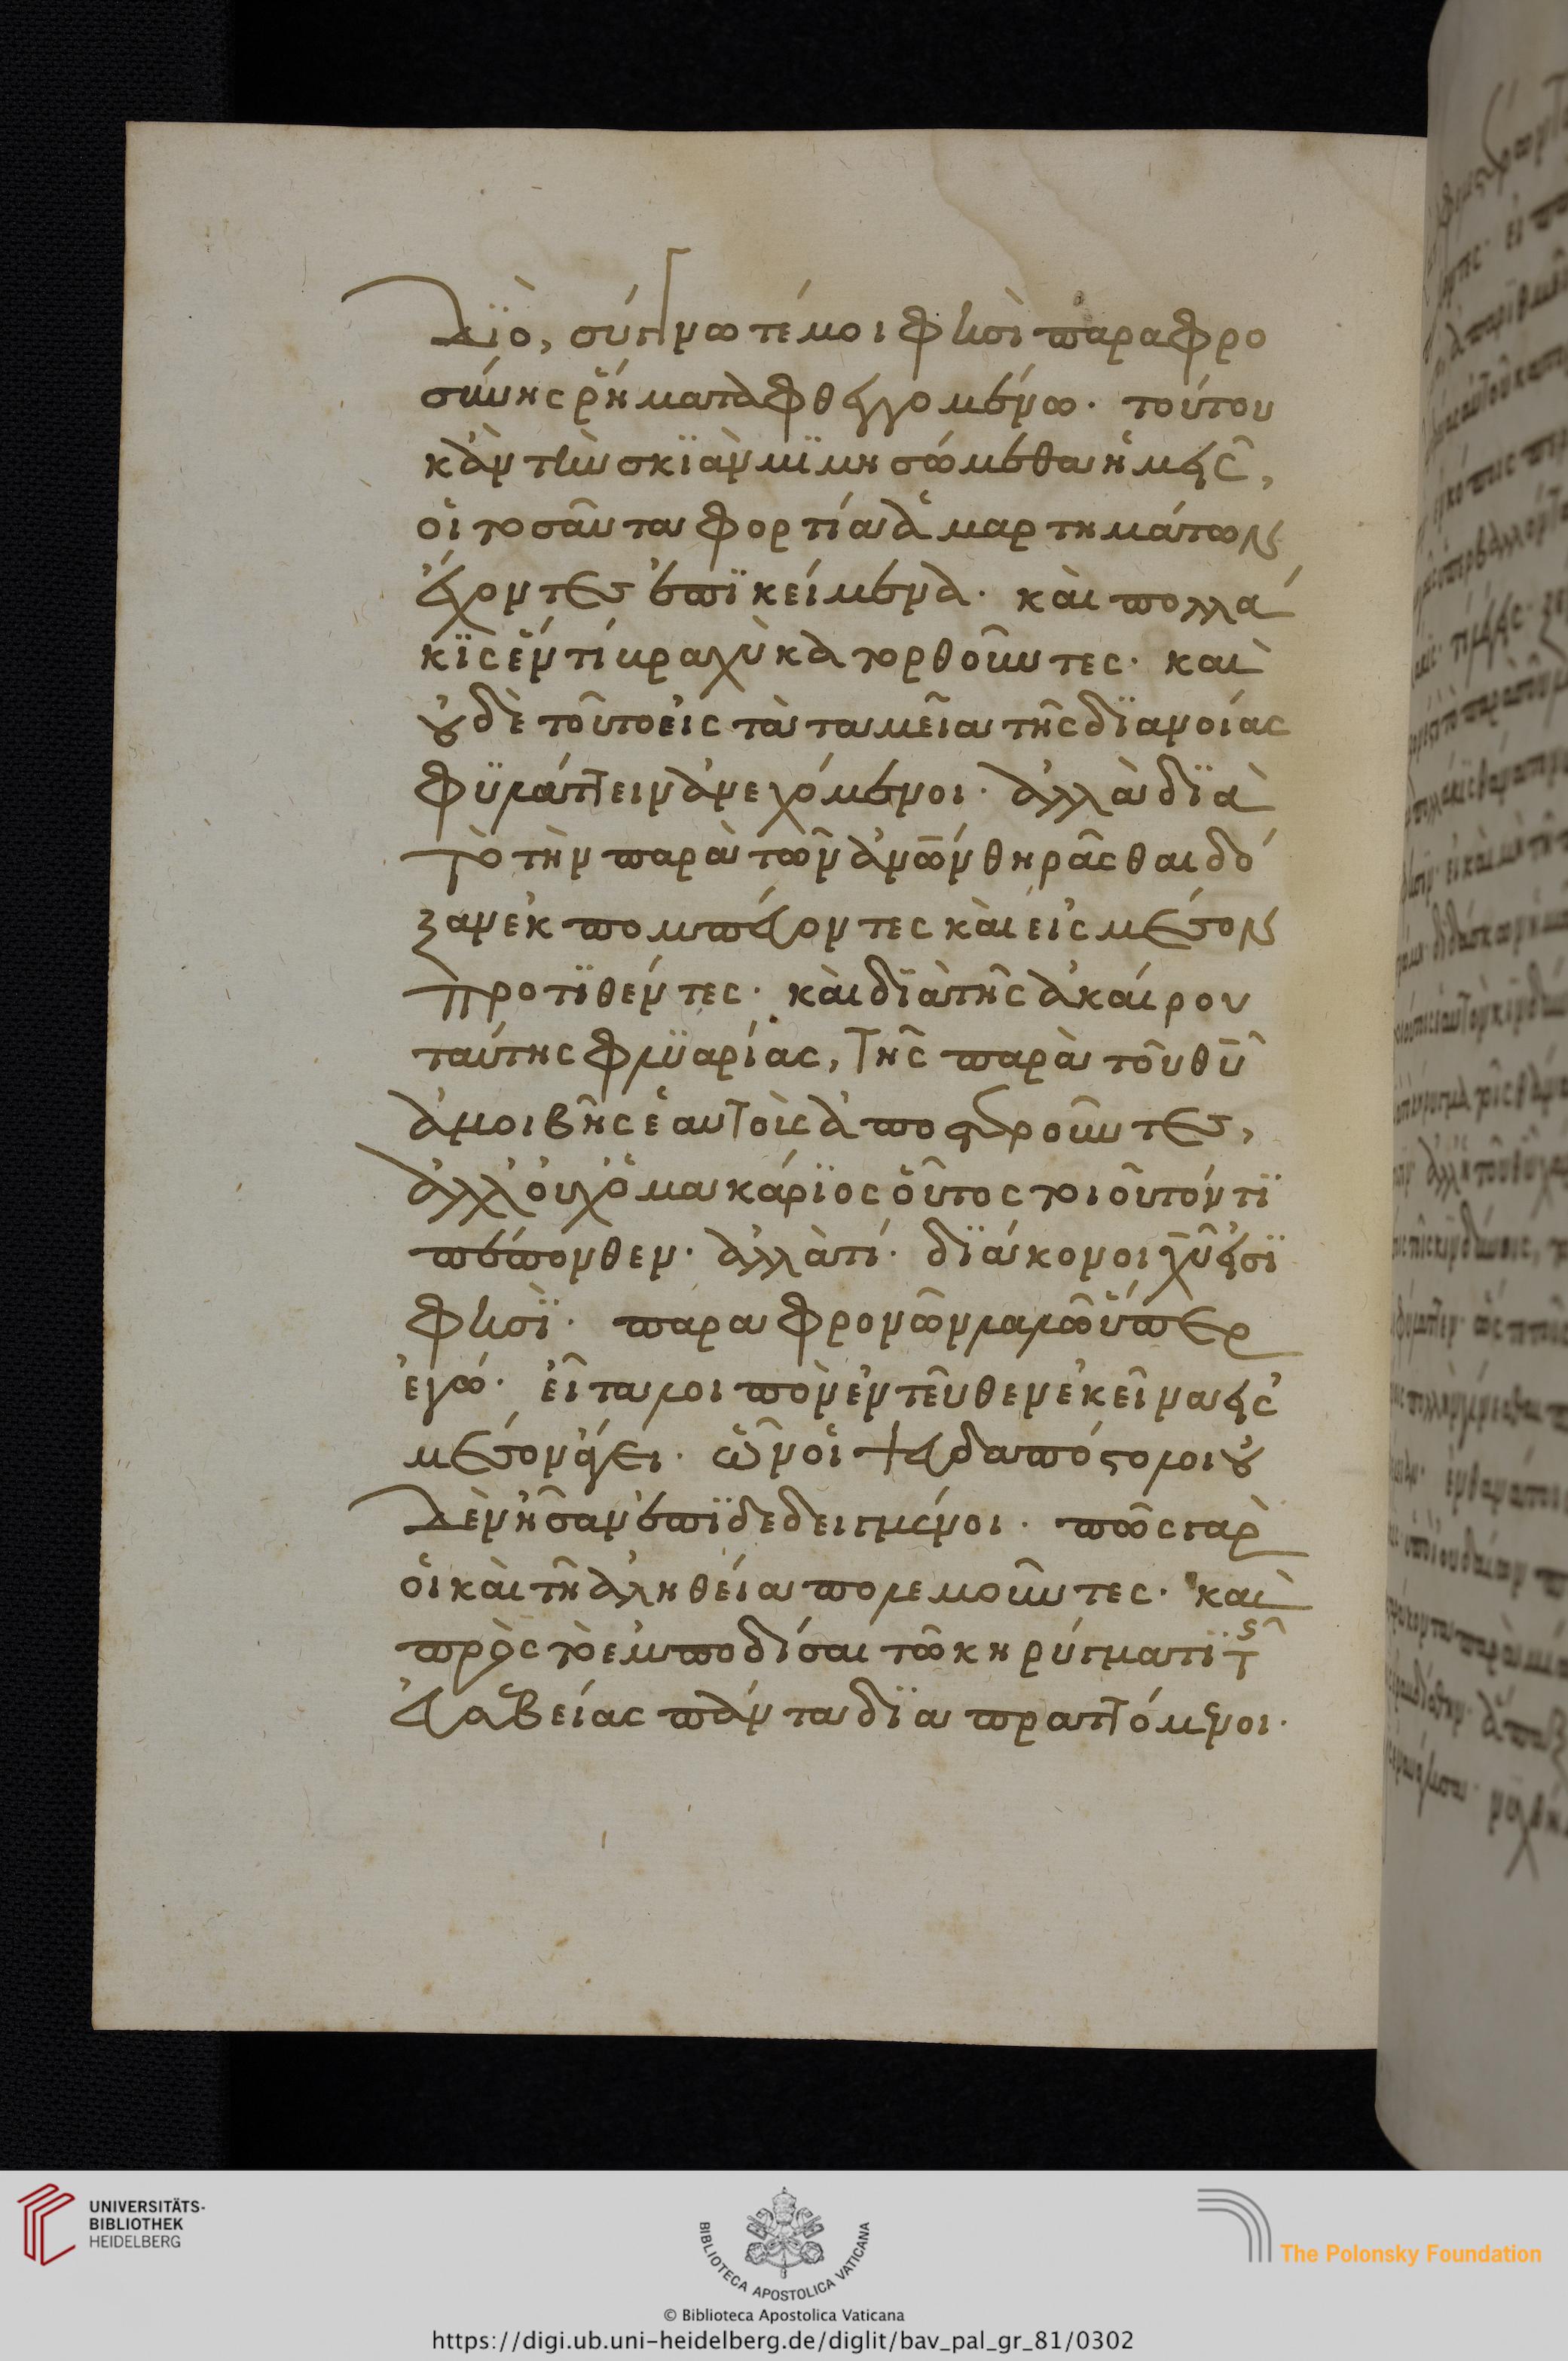 Διὸ, σύγγνωτέ μοι φησὶ παραφρο
σύνης ῥήματα φθεγγομένω· τούτου
κἂν τὴν σκϊὰν μϊμησώμεθα ἡμεῖς,
οἱ τοσαῦτα φορτία ἁμαρτημάτων
ἔχοντες ἐπϊκείμενα· καὶ πολλά
κϊς ἕν τί βραχὺ κατορθοῦντες· καὶ
οὐδὲ τοῦτο εἰς τὰ ταμεῖα τῆς δϊανοίας
φϋλάττειν ἀνεχόμενοι· ἀλλὰ δϊὰ
τὸ τὴν παρὰ τῶν ἀνῶν θηρᾶσθαι δό
ξαν ἐκπομπεύοντες καὶ εἰς μέσον
προτϊθέντες· καὶ δϊὰ τῆς ἀκαίρου
ταύτης φλϋαρίας, τῆς παρὰ τοῦ θῦ
ἀμοιβῆς ἑαυτοὺς ἀποστεροῦντες,
ἀλλ' οὐχ ὁ μακάρϊος οὗτος τοιοῦτόν τϊ
πέπονθεν· ἀλλὰ τί· δϊάκονοι χῦ εἰσϊ
φησϊ· παραφρονῶν λαλῶ ὑπὲρ
ἐγώ· εἶτα λοιπὸν ἐντεῦθεν ἐκεῖνα εἰς
μέσον ἄγει· ὧν οἱ ψευδαπόστολοι οὐ
δὲν ἦσαν ἐπϊδεδειγμένοι· πῶς γὰρ
οἱ καὶ τῆ ἀληθεία πολεμοῦντες· καὶ
πρὸς τὸ ἐμποδίσαι τῶ κηρύγματϊ τῆς
εὐσεβείας πάντα δϊαπραττόμενοι·
UNIVERSITÄTS-
BIBLIOTHEK
HEIDELBERG
BIBLIOTECA APOSTOLICA VATICANA
The Polonsky Foundation
© Biblioteca Apostolica Vaticana
https://digi.ub.uni-heidelberg.de/diglit/bav_pal_gr_81/0302